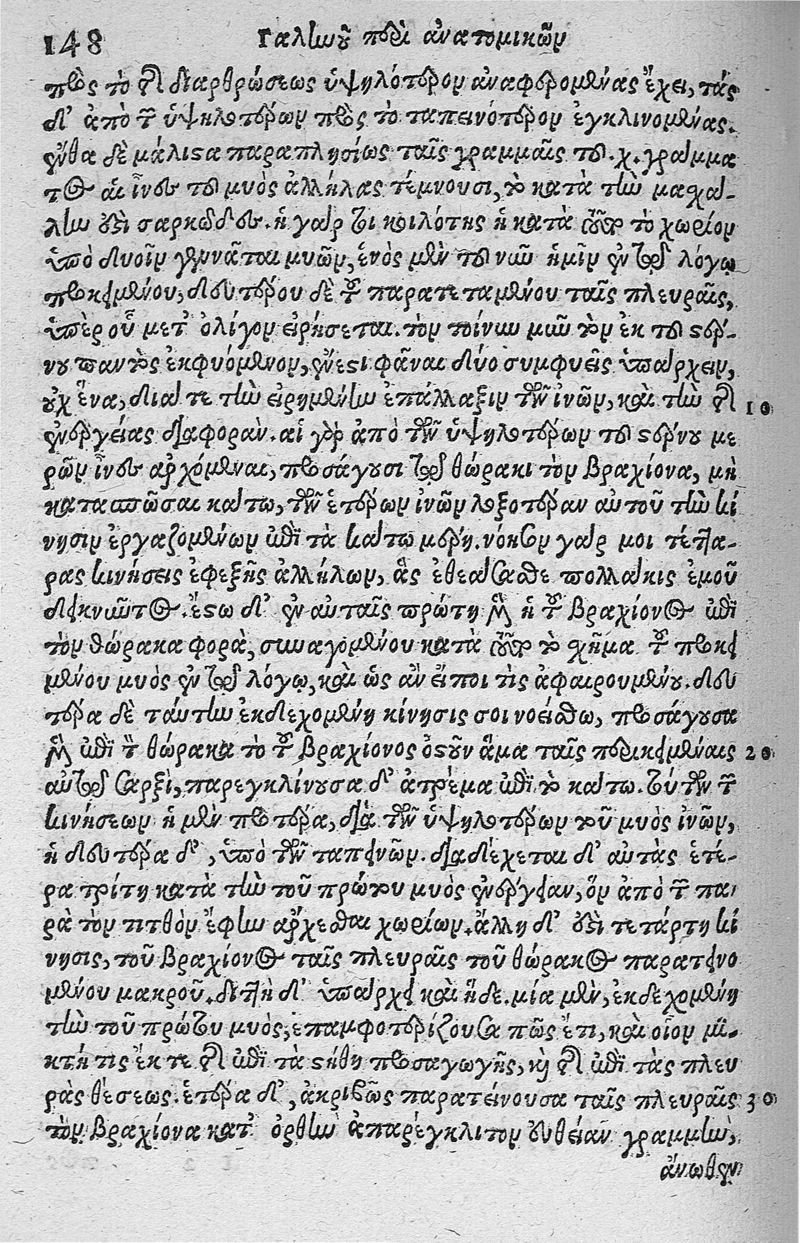 148 Γαληνοῦ περὶ ἀνατομικῶν
πρὸς τὸ τῆς διαρθρώσεως ὑψηλότερον ἀναφερομένας ἔχει, τάς
δ' ἀπὸ τῶν ὑψηλοτέρων πρὸς τὸ ταπεινότερον ἐγκλινομένας.
ἔνθα δὲ μάλιστα παραπλησίως ταῖς γραμμαῖς τοῦ .χ. γράμμα
τος αἱ ἶνες τοῦ μυὸς ἀλλήλας τέμνουσι, τὸ κατὰ τὴν μασχά-
λην ἐστὶ σαρκῶδες. ἡ γάρ τοι κοιλότης ἡ κατὰ τοῦτο τὸ χωρίον
ὑπὸ δυοῖν γεννᾶται μυῶν, ἑνὸς μὲν τοῦ νῦν ἡμῖν ἐν τῷ λόγῳ
προκειμένου, δευτέρου δὲ τοῦ παρατεταμένου ταῖς πλευραῖς,
ὑπὲρ οὗ μετ' ὀλίγον εἰρήσεται. τὸν τοίνυν μῦν τὸν ἐκ τοῦ στέρ-
νου παντὸς ἐκφυόμενον, ἔνεστι φάναι δύο συμφυεῖς ὑπάρχειν,
οὐχ ἕνα, διά τε τὴν εἰρημένην ἐπάλλαξιν τῶν ἰνῶν, καὶ τὴν τῆς 10
ἐνεργείας διαφοράν. αἱ γὰρ ἀπὸ τῶν ὑψηλοτέρων τοῦ στέρνου με
ρῶν ἶνες ἀρχόμεναι, προσάγουσι τῷ θώρακι τὸν βραχίονα, μὴ
κατασπῶσαι κάτω, τῶν ἑτέρων ἰνῶν λοξοτέραν αὐτοῦ τὴν κί
νησιν ἐργαζομένων ἐπὶ τὰ κάτω μέρη. νόησον γάρ μοι τέττα-
ρας κινήσεις ἐφεξῆς ἀλλήλων, ἃς ἐθεάσασθε πολλάκις ἐμοῦ
δεικνῦντος. ἔστω δ' ἐν αὐταῖς πρώτη μὲν ἡ τοῦ βραχίονος ἐπὶ
τὸν θώρακα φορὰ, συναγομένου κατὰ τοῦτο τὸ σχῆμα τοῦ προκει
μένου μυὸς ἐν τῷ λόγῳ, καὶ ὡς ἂν εἴποι τις ἀφαιρουμένου. δευ
τέρα δὲ ταύτην ἐκδεχομένη κίνησις σοι νοείσθω, προσάγουσα
μὲν ἐπὶ τὸν θώρακα τὸ τοῦ βραχίονος ὀστοῦν ἅμα ταῖς περικειμέναις 20
αὐτῷ σαρξὶ, παρεγκλίνουσα δ' ἀτρέμα ἐπὶ τὸ κάτω. τούτων τῶν
κινήσεων ἡ μὲν προτέρα, διὰ τῶν ὑψηλοτέρων τοῦ μυὸς ἰνῶν,
ἡ δευτέρα δ', ὑπὸ τῶν ταπεινῶν. διαδέχεται δ' αὐτὰς ἑτέ-
ρα τρίτη κατὰ τὴν τοῦ πρώτου μυὸς ἐνέργειαν, ὃν ἀπὸ τῶν πα
ρὰ τὸν τιτθὸν ἔφην ἄρχεσθαι χωρίων. ἄλλη δ' ἐστὶ τετάρτη κί
νησις, τοῦ βραχίονος ταῖς πλευραῖς τοῦ θώρακος παρατεινο
μένου μακροῦ. διττὴ δ' ὑπάρχει καὶ ἥδε. μία μὲν, ἐκδεχομένη
τὴν τοῦ πρώτου μυὸς, ἐπαμφοτερίζουσα πῶς ἔτι, καὶ οἷον μι-
κτή τις ἔκ τε τῆς ἐπὶ τὰ στήθη προσαγωγῆς, καὶ τῆς ἐπὶ τὰς πλευ
ρὰς θέσεως. ἑτέρα δ', ἀκριβῶς παρατείνουσα ταῖς πλευραῖς 30
τὸν βραχίονα κατ' ὀρθὴν ἀπαρέγκλιτον εὐθεῖαν γραμμὴν,
ἄνωθεν